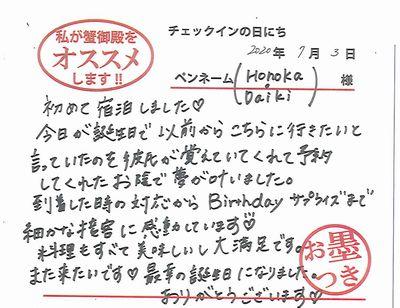 私が蟹御殿を
オススメ
します!!
チェックインの日にち
2020年 7月 3日
ペンネーム(Honoka・Daiki)様
初めて宿泊しました♡
今日が誕生日で以前からこちらに行きたいと
言っていたのを彼氏が覚えていてくれて予約
してくれたお陰で夢が叶いました。
到着した時の対応からBirthdayサプライズまで
細かな接客に感動しています♡
料理もすべて美味しいし大満足です。
また来たいです♡最幸の誕生日になりました。
ありがとうございます♡
お墨
つき